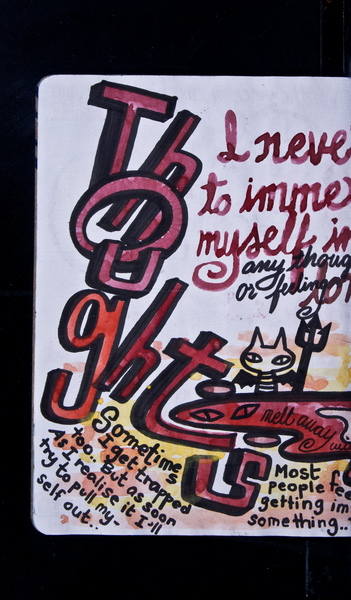 Thoughts
I neve
to imme
myself in
any thoug
or feeling
melt away
Sometimes
I get trapped
too.. But as soon
As I realise it I'll
try to pull my-
self out..
Most
people fee
getting im
something..